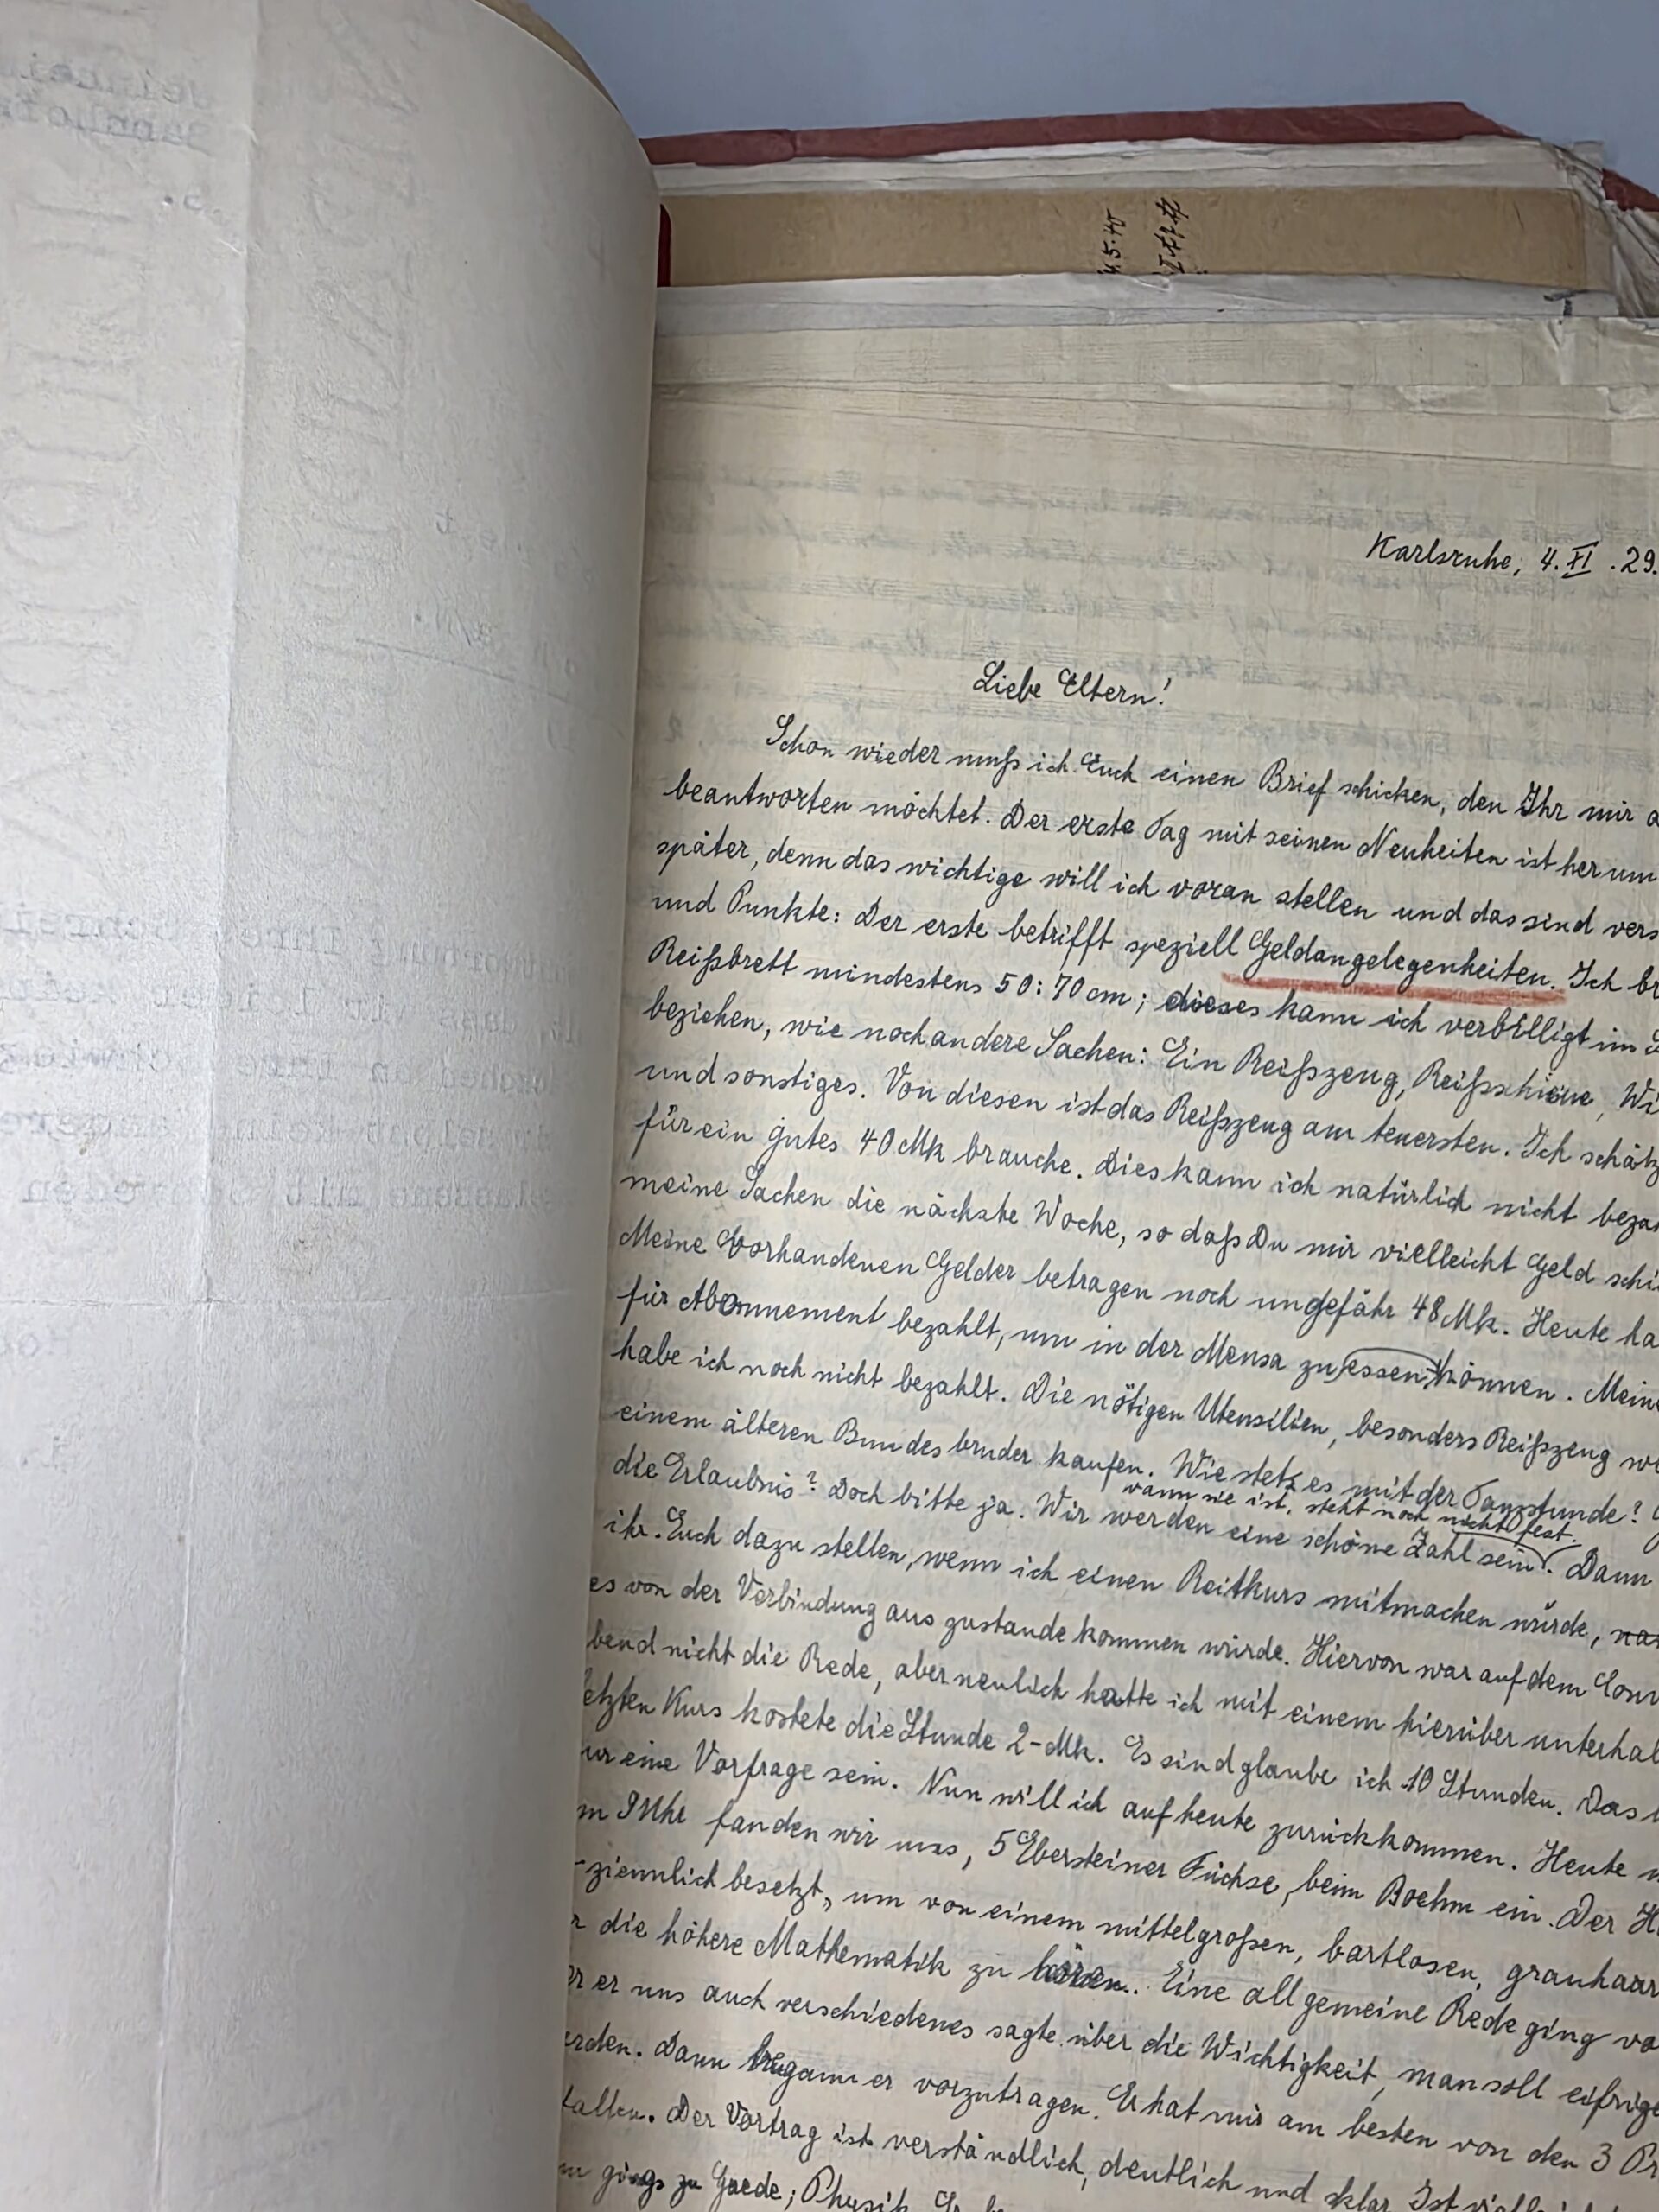 Karlsruhe, 4. XI. 29.
Liebe Eltern!
Schon wieder muß ich Euch einen Brief schicken, den Ihr mir
beantworten möchtet. Der erste Tag mit seinen Neuheiten ist herum
später, denn das wichtige will ich voran stellen und das sind vers
und Punkte: Der erste betrifft speziell Geldangelegenheiten. Ich br
Reißbrett mindestens 50:70 cm; dieses kann ich verbilligt im
beziehen, wie noch andere Sachen: Ein Reißzeug, Reißschiene, Wi
und sonstiges. Von diesen ist das Reißzeug am teuersten. Ich schätz
für ein gutes 40 Mk brauche. Dies kann ich natürlich nicht beza
meine Sachen die nächste Woche, so daß Du mir vielleicht Geld schi
Meine Vorhandenen Gelder betragen noch ungefähr 48 Mk. Heute ha
für Abonnement bezahlt, um in der Mensa zu essen können. Meine
habe ich noch nicht bezahlt. Die nötigen Utensilien, besonders Reißzeug we
einem älteren Bundesbruder kaufen. Wie stets es mit der Tanzstunde?
die Erlaubnis? Doch bitte ja. Wir werden eine schöne Zahl sein. Dann
wann sie ist, steht noch nicht fest.
ihr Euch dazu stellen, wenn ich einen Reitkurs mitmachen würde,
es von der Verbindung aus zustande kommen würde. Hiervon war auf dem Conv
bend nicht die Rede, aber neulich hatte ich mit einem hierüber unterhal
etzten Kurs kostete die Stunde 2-Mk. Es sind glaube ich 10 Stunden. Das
ur eine Vorfrage sein. Nun will ich auf heute zurückkommen. Heute
m 9 Uhr fanden wir uns, 5 Ebersteiner Füchse, beim Boehm ein. Der H
ziemlich besetzt, um von einem mittelgroßen, bartlosen, grauhaar
r die höhere Mathematik zu hören. Eine allgemeine Rede ging vo
er er uns auch verschiedenes sagte über die Wichtigkeit, man soll eifrige
erden. Dann begann er vorzutragen. Er hat mir am besten von den 3 Pr
fallen. Der Vortrag ist verständlich, deutlich und klar. Ist
gings zu Gaede; Physik.